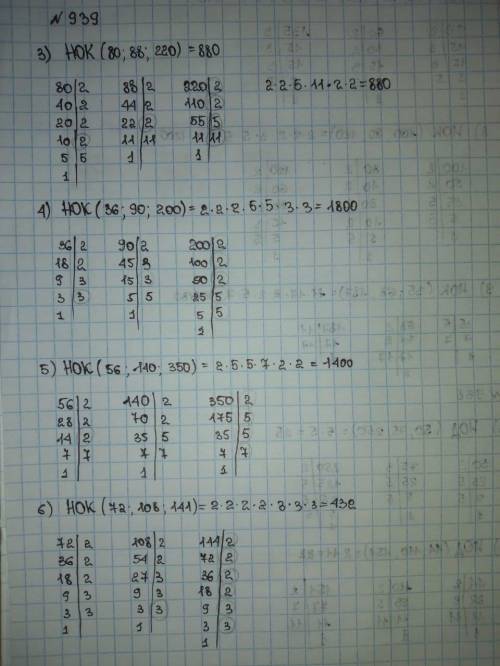 N 939
3) НОК (80; 88; 220) = 880
80|2 88|2 220|2 2·2·5·11·2·2=880
40|2 44|2 110|2
20|2 22|2 55|5
10|2 11|11 11|11
5|5 1| 1|
1|
4) НОК (36; 90; 200) = 2·2·2·5·5·3·3=1800
36|2 90|2 200|2
18|2 45|3 100|2
9|3 15|3 50|2
3|3 5|5 25|5
1| 1| 5|5
1|
5) НОК (56; 140; 350) = 2·5·5·7·2·2=1400
56|2 140|2 350|2
28|2 70|2 175|5
14|2 35|5 35|5
7|7 7|7 7|7
1| 1| 1|
6) НОК (72; 108; 144)=2·2·2·2·3·3·3=432
72|2 108|2 144|2
36|2 54|2 72|2
18|2 27|3 36|2
9|3 9|3 18|2
3|3 3|3 9|3
1| 1| 3|3
1|